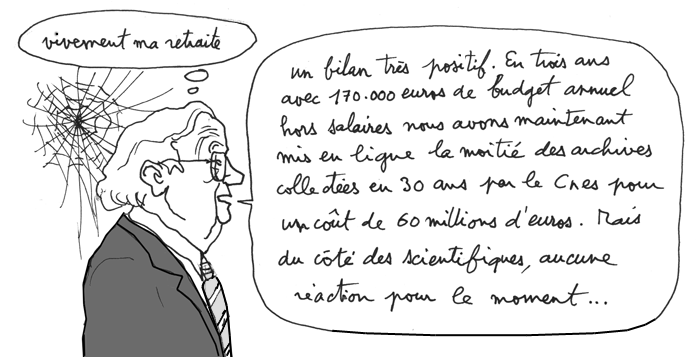 vivement ma retraite
un bilan très positif. En trois ans
avec 170.000 euros de budget annuel
hors salaires nous avons maintenant
mis en ligne la moitié des archives
collectées en 30 ans par le Cnes pour
un coût de 60 millions d'euros. Mais
du côté des scientifiques, aucune
réaction pour le moment...